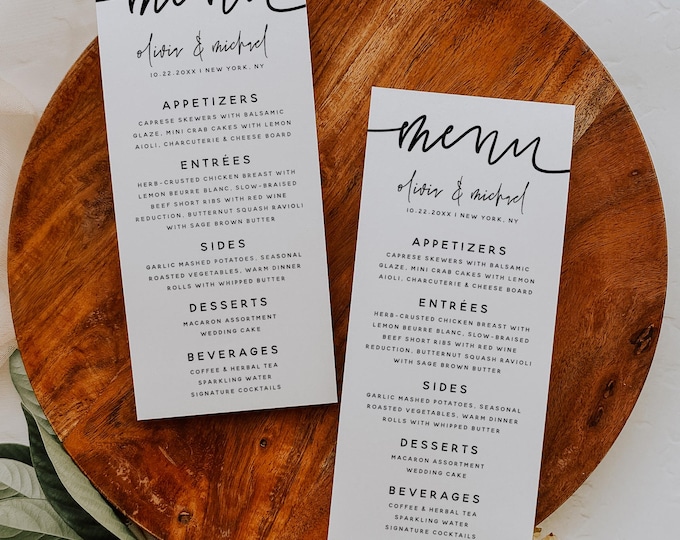 menu
olivia & michael
10.22.20XX | NEW YORK, NY
APPETIZERS
CAPRESE SKEWERS WITH BALSAMIC
GLAZE, MINI CRAB CAKES WITH LEMON
AIOLI, CHARCUTERIE & CHEESE BOARD
ENTRÉES
HERB-CRUSTED CHICKEN BREAST WITH
LEMON BEURRE BLANC, SLOW-BRAISED
BEEF SHORT RIBS WITH RED WINE
REDUCTION, BUTTERNUT SQUASH RAVIOLI
WITH SAGE BROWN BUTTER
SIDES
GARLIC MASHED POTATOES, SEASONAL
ROASTED VEGETABLES, WARM DINNER
ROLLS WITH WHIPPED BUTTER
DESSERTS
MACARON ASSORTMENT
WEDDING CAKE
BEVERAGES
COFFEE & HERBAL TEA
SPARKLING WATER
SIGNATURE COCKTAILS
menu
olivia & michael
10.22.20XX | NEW YORK, NY
APPETIZERS
CAPRESE SKEWERS WITH BALSAMIC
GLAZE, MINI CRAB CAKES WITH LEMON
AIOLI, CHARCUTERIE & CHEESE BOARD
ENTRÉES
HERB-CRUSTED CHICKEN BREAST WITH
LEMON BEURRE BLANC, SLOW-BRAISED
BEEF SHORT RIBS WITH RED WINE
REDUCTION, BUTTERNUT SQUASH RAVIOLI
WITH SAGE BROWN BUTTER
SIDES
GARLIC MASHED POTATOES, SEASONAL
ROASTED VEGETABLES, WARM DINNER
ROLLS WITH WHIPPED BUTTER
DESSERTS
MACARON ASSORTMENT
WEDDING CAKE
BEVERAGES
COFFEE & HERBAL TEA
SPARKLING WATER
SIGNATURE COCKTAILS